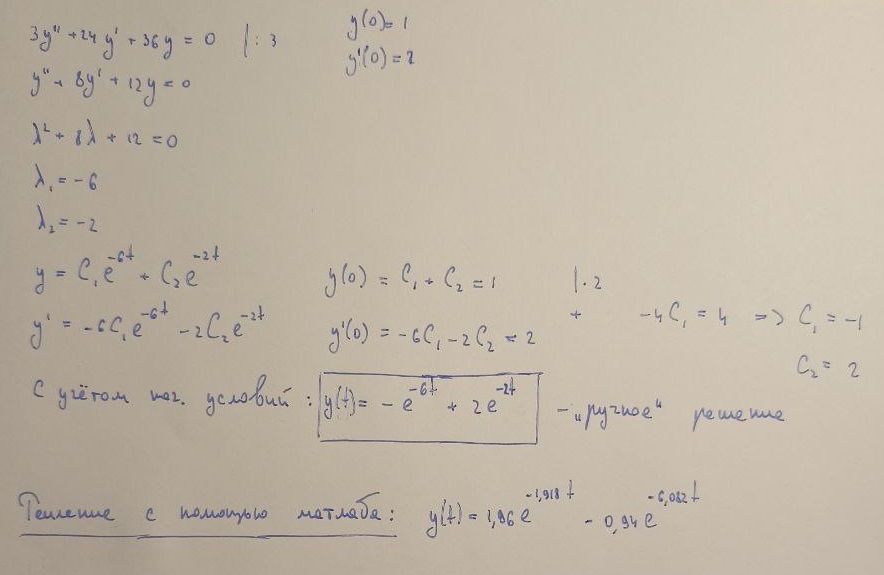 3y'' + 24y' + 36y = 0 |: 3
y(0) = 1
y'(0) = 2
y'' + 8y' + 12y = 0
λ² + 8λ + 12 = 0
λ₁ = -6
λ₂ = -2
y = C₁e^{-6t} + C₂e^{-2t}
y' = -6C₁e^{-6t} - 2C₂e^{-2t}
y(0) = C₁ + C₂ = 1 |·2
y'(0) = -6C₁ - 2C₂ = 2
+ -4C₁ = 4 => C₁ = -1
C₂ = 2
С учётом нач. условий: y(t) = -e^{-6t} + 2e^{-2t} - „ручное“ решение
Решение с помощью матлаба: y(t) = 1,96e^{-1,918t} - 0,94e^{-6,082t}